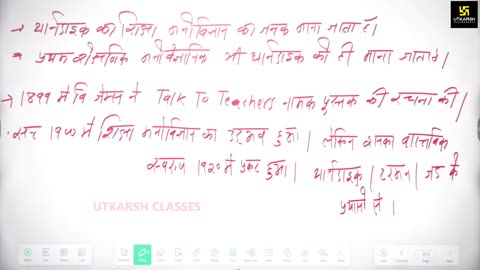 UTKARSH CLASSES
→ थार्नडाइक को शिक्षा मनोविज्ञान का जनक माना जाता है।
= प्रथम शैक्षणिक मनोवैज्ञानिक भी थार्नडाइक को ही माना जाता है।
→ 1899 मे वि जेम्स ने Talk To Teachers नामक पुस्तक की रचना की।
सन् 1900 मे शिक्षा मनोविज्ञान का उद्भव हुआ। लेकिन इसका वास्तविक
स्वरूप 1920 मे प्रकट हुआ। थार्नडाइक / टरमन / जड के
प्रयासो से।
UTKARSH CLASSES